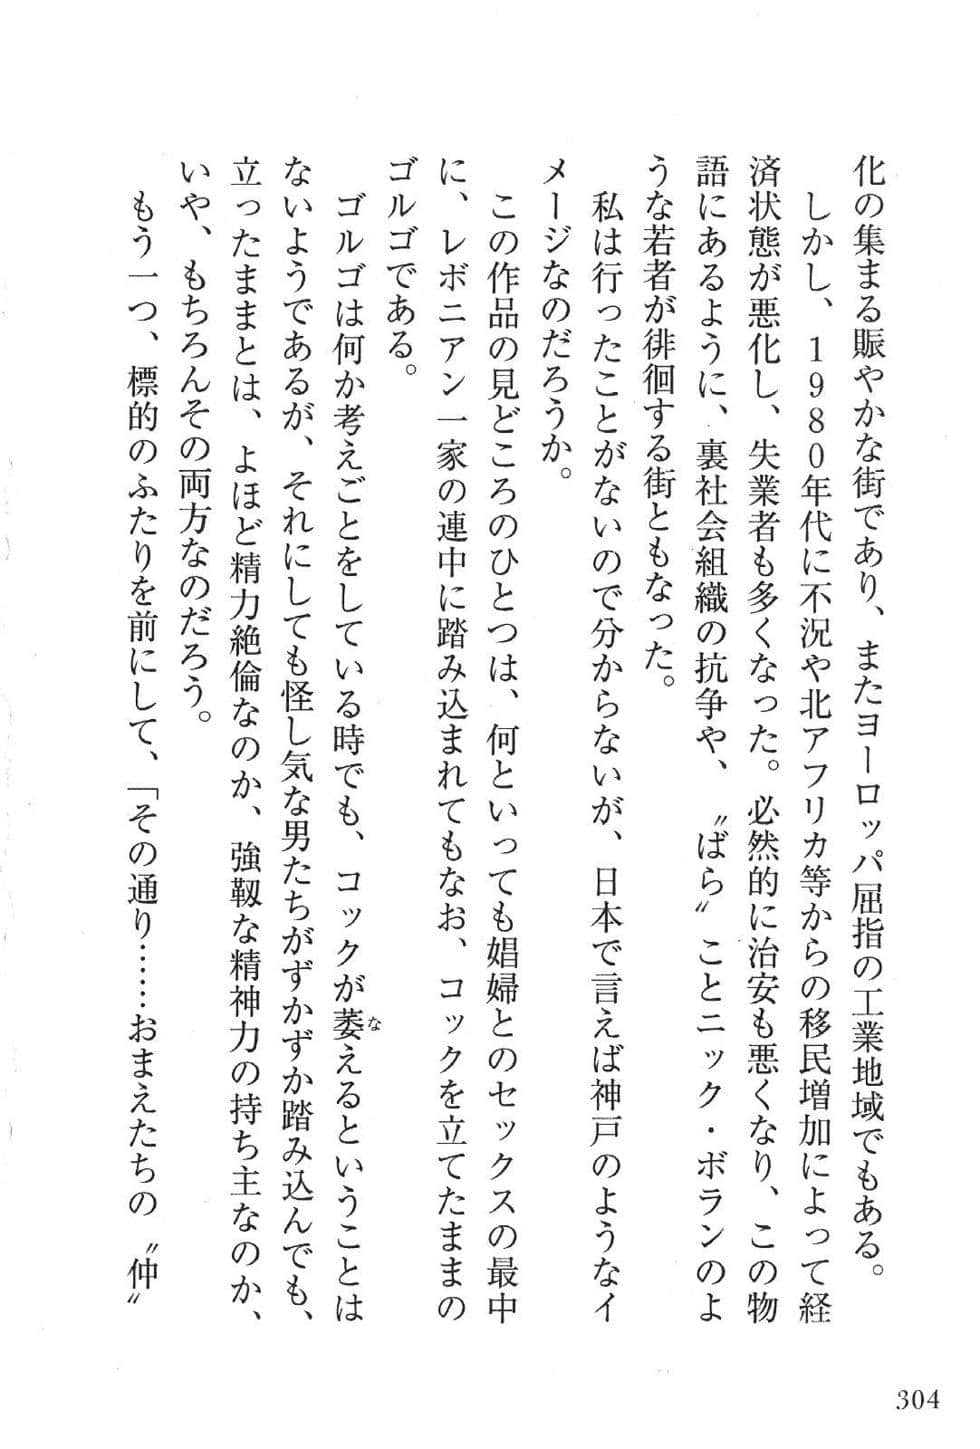 化の集まる賑やかな街であり、またヨーロッパ屈指の工業地域でもある。
しかし、1980年代に不況や北アフリカ等からの移民増加によって経
済状態が悪化し、失業者も多くなった。必然的に治安も悪くなり、この物
語にあるように、裏社会組織の抗争や、〝ばら〟ことニック・ボランのよ
うな若者が徘徊する街ともなった。
私は行ったことがないので分からないが、日本で言えば神戸のようなイ
メージなのだろうか。
この作品の見どころのひとつは、何といっても娼婦とのセックスの最中
に、レボニアン一家の連中に踏み込まれてもなお、コックを立てたままの
ゴルゴである。
ゴルゴは何か考えごとをしている時でも、コックが萎えるということは
な
ないようであるが、それにしても怪し気な男たちがずかずか踏み込んでも、
立ったままとは、よほど精力絶倫なのか、強靱な精神力の持ち主なのか、
いや、もちろんその両方なのだろう。
もう一つ、標的のふたりを前にして、「その通り……おまえたちの〝仲〟
304